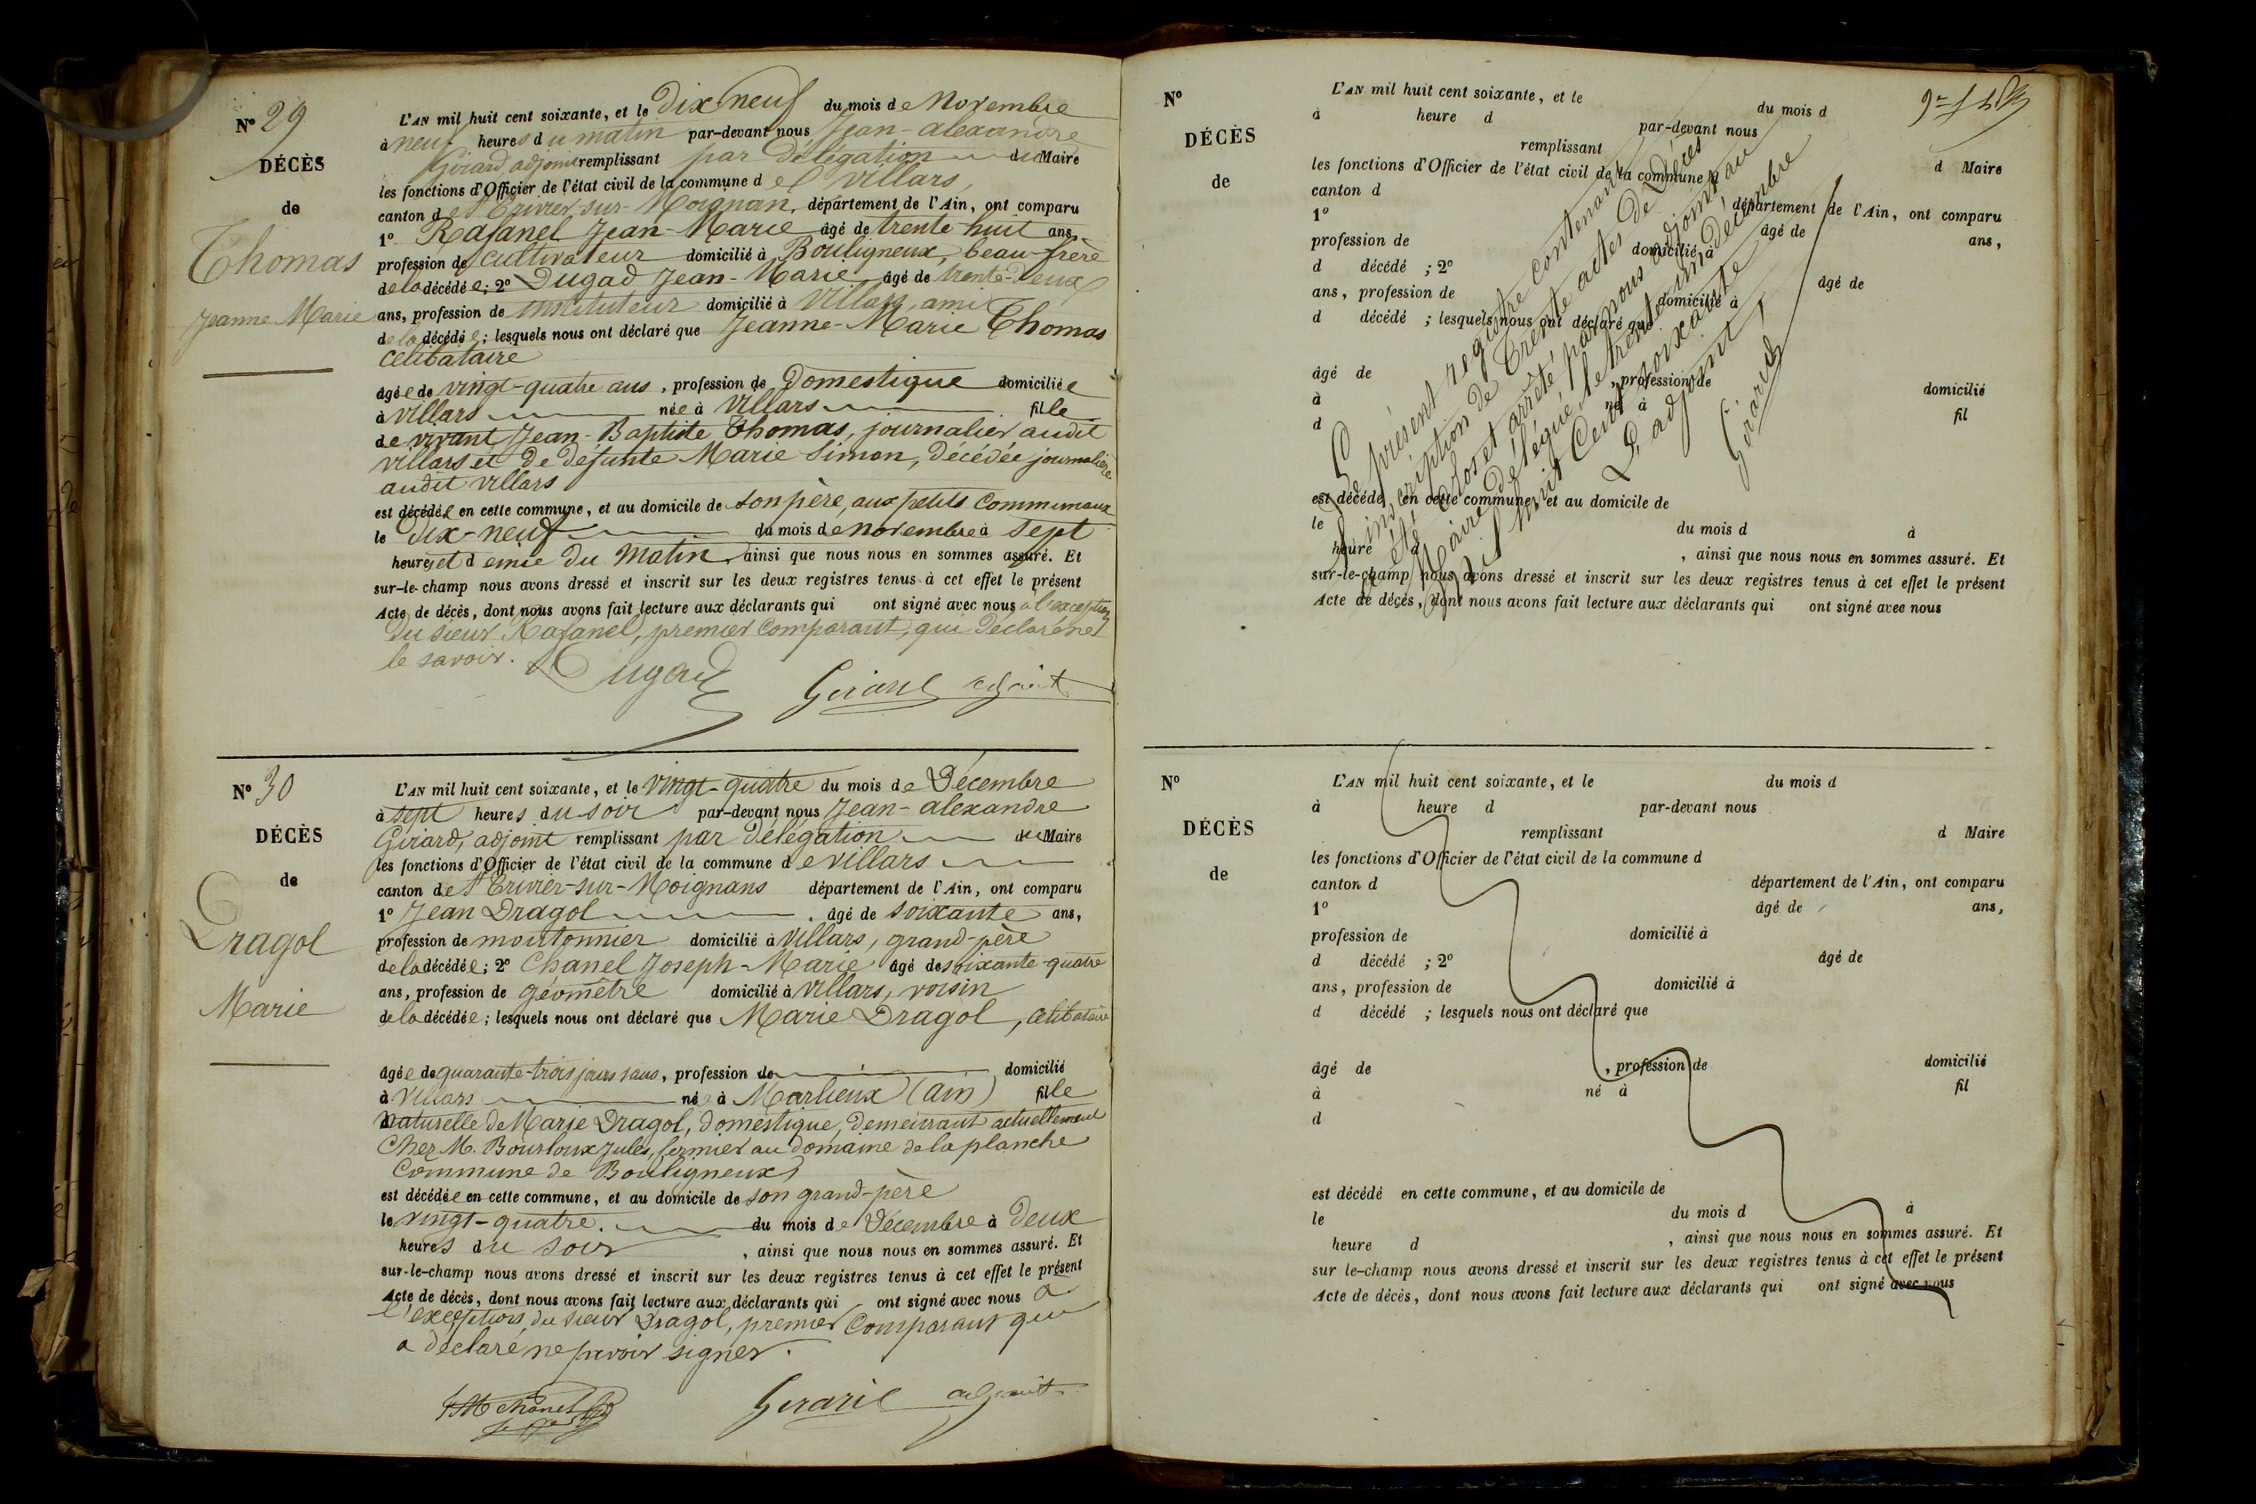 N° 29
DÉCÈS
de
Thomas
Jeanne Marie
L'AN mil huit cent soixante, et le Dix neuf du mois de Novembre
à neuf heures du matin par-devant nous Jean-alexandre
Girard adjoint remplissant par Délégation du Maire
les fonctions d'Officier de l'état civil de la commune de Villars,
canton de St Trivier-sur-Moignan, département de l'Ain, ont comparu
1° Rafanel Jean-Marie âgé de trente huit ans,
profession de cultivateur domicilié à Bouligneux, beau-frère
de la décédée; 2° Dugad Jean-Marie âgé de trente-deux
ans, profession de instituteur domicilié à Villars, ami
de la décédée; lesquels nous ont déclaré que Jeanne-Marie Thomas
célibataire
âgée de vingt-quatre ans, profession de Domestique domiciliée
à villars née à villars fille
de vivant Jean-Baptiste Thomas, journalier audit
villars et de défunte Marie Simon, décédée journalière
audit villars
est décédée en cette commune, et au domicile de son père, aux petits Communaux
le dix-neuf du mois de novembre à sept
heures et demie du matin, ainsi que nous nous en sommes assuré. Et
sur-le-champ nous avons dressé et inscrit sur les deux registres tenus à cet effet le présent
Acte de décès, dont nous avons fait lecture aux déclarants qui ont signé avec nous à l'exception
du sieur Rafanel, premier comparant, qui déclaré ne
le savoir.
Dugad Girard adjoint
N° 30
DÉCÈS
de
Dragol
Marie
L'AN mil huit cent soixante, et le vingt-quatre du mois de Décembre
à sept heures du soir par-devant nous Jean-alexandre
Girard, adjoint remplissant par délégation du Maire
les fonctions d'Officier de l'état civil de la commune de villars
canton de St Trivier-sur-Moignans département de l'Ain, ont comparu
1° Jean Dragol, âgé de soixante ans,
profession de moutonnier domicilié à Villars, grand-père
de la décédée; 2° Chanel Joseph-Marie âgé de soixante-quatre
ans, profession de géomètre domicilié à villars, voisin
de la décédée; lesquels nous ont déclaré que Marie Dragol, célibataire
âgée de quarante-trois jours sans, profession de domicilié
à Villars né à Marlieux (ain) fille
naturelle de Marie Dragol, domestique, demeurant actuellement
chez M. Bourloux Jules, fermier au domaine de la planche
Commune de Bouligneux
est décédée en cette commune, et au domicile de son grand-père
le vingt-quatre. du mois de Décembre à deux
heures du soir, ainsi que nous nous en sommes assuré. Et
sur-le-champ nous avons dressé et inscrit sur les deux registres tenus à cet effet le présent
Acte de décès, dont nous avons fait lecture aux déclarants qui ont signé avec nous à
l'exception du sieur Dragol, premier comparant qui
a déclaré ne savoir signer.
JM chanel Girard adjoint
N°
DÉCÈS
de
L'AN mil huit cent soixante, et le du mois d
à heure d par-devant nous
remplissant d Maire
les fonctions d'Officier de l'état civil de la commune d
canton d département de l'Ain, ont comparu
1° âgé de ans,
profession de domicilié à
d décédé ; 2° âgé de
ans, profession de domicilié à
d décédé ; lesquels nous ont déclaré que
âgé de , profession de domicilié
à né à fil
d
est décédé en cette commune, et au domicile de
le du mois d à
heure d , ainsi que nous nous en sommes assuré. Et
sur-le-champ nous avons dressé et inscrit sur les deux registres tenus à cet effet le présent
Acte de décès, dont nous avons fait lecture aux déclarants qui ont signé avec nous
Le présent registre contenant
inscription de Trente actes de Décès
a été clos et arrêté par nous adjoint au
Maire délégué le trente un décembre
mil huit cent soixante
L'adjoint,
Girard
N°
DÉCÈS
de
L'AN mil huit cent soixante, et le du mois d
à heure d par-devant nous
remplissant d Maire
les fonctions d'Officier de l'état civil de la commune d
canton d département de l'Ain, ont comparu
1° âgé de ans,
profession de domicilié à
d décédé ; 2° âgé de
ans, profession de domicilié à
d décédé ; lesquels nous ont déclaré que
âgé de , profession de domicilié
à né à fil
d
est décédé en cette commune, et au domicile de
le du mois d à
heure d , ainsi que nous nous en sommes assuré. Et
sur le-champ nous avons dressé et inscrit sur les deux registres tenus à cet effet le présent
Acte de décès, dont nous avons fait lecture aux déclarants qui ont signé avec nous